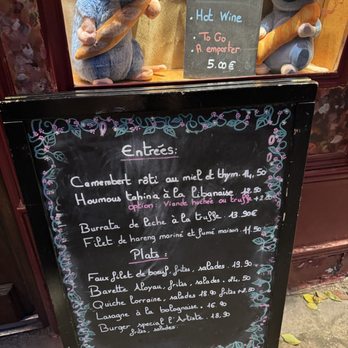 Hot Wine
To Go
A emporter
5.00€
Entrées:
Camembert rôti au miel et thym. 14,50
Houmous tahina à la libanaise 12.50
option: Viande hachée ou truffe +2.50
Burrata de leche à la truffe. 13,90€
Filet de hareng mariné et fumé maison. 11,50
Plats:
Faux filet de boeuf, frites, salades. 19.90.
Bavette Aloyau, frites, salades.
Quiche Lorraine, salades
Lasagne à la bolognaise. 16.90
Burger spécial l'Artiste.
frites, salades.